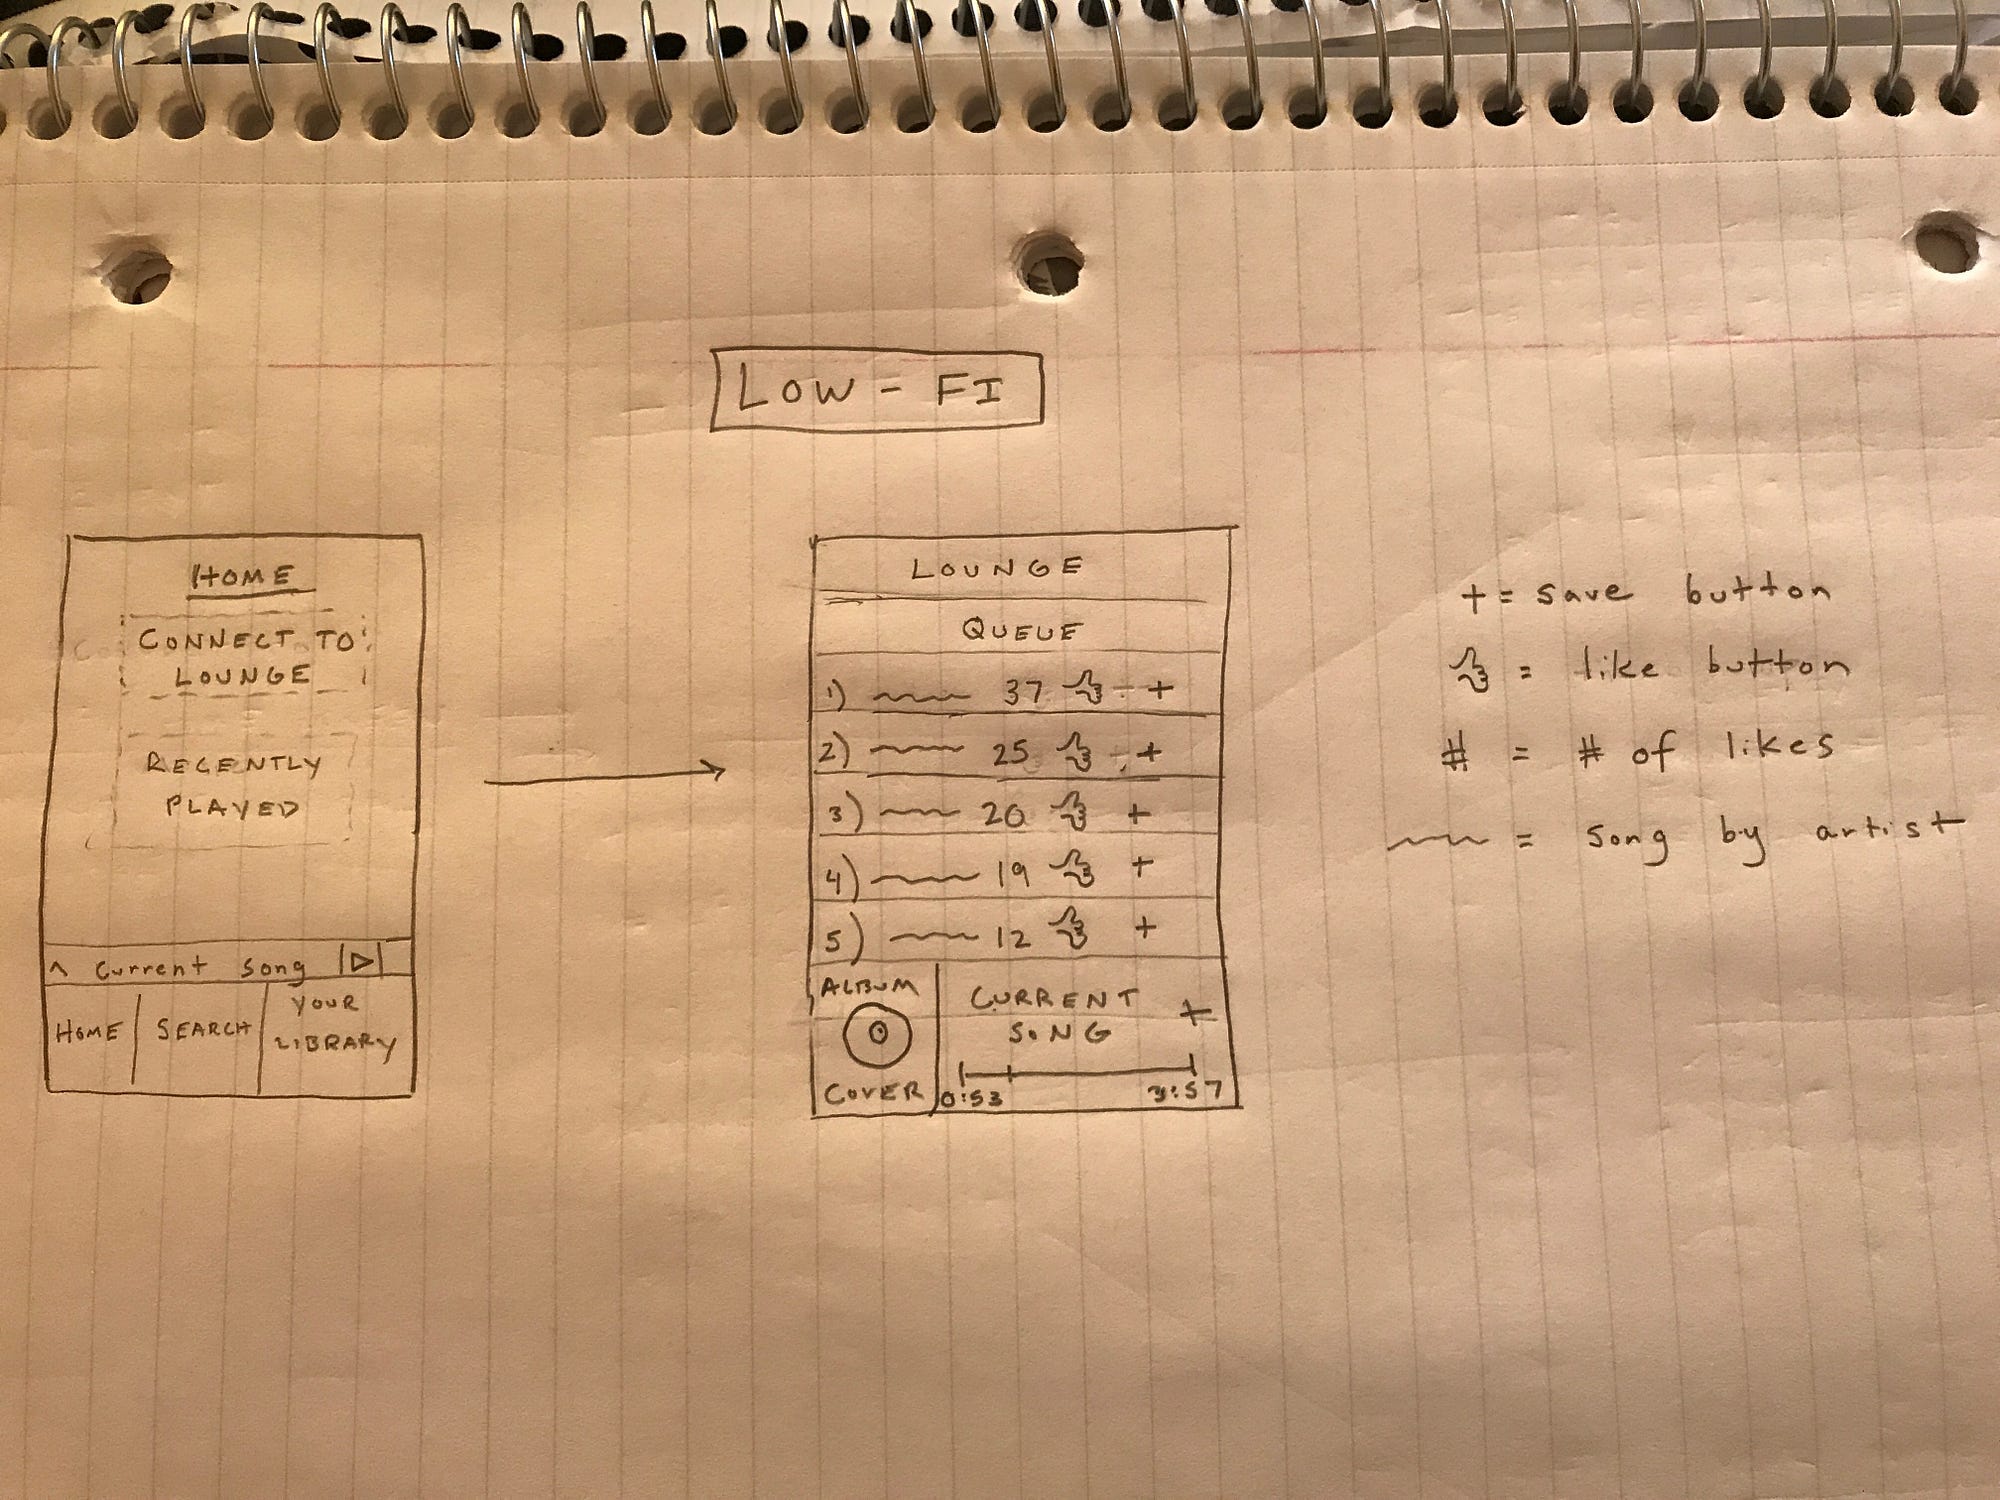 LOW - FI
HOME
CONNECT TO
LOUNGE
RECENTLY
PLAYED
^ Current song
HOME
SEARCH
YOUR
LIBRARY
LOUNGE
QUEUE
1) 37 +
2) 25 +
3) 20 +
4) 19 +
5) 12 +
ALBUM
COVER
CURRENT
SONG
+
0:53
3:57
+ = save button
= like button
# = # of likes
= song by artist